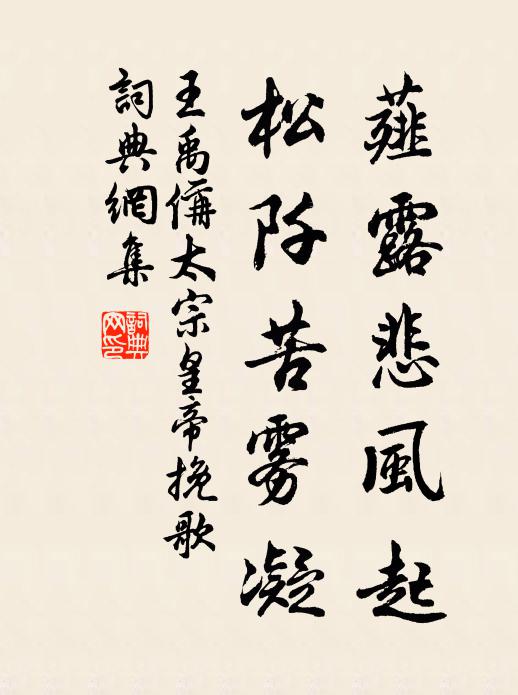 薤露悲風起
松阡苦雾凝
王禹偁太宗皇帝挽歌
詞典網集
詞典网印